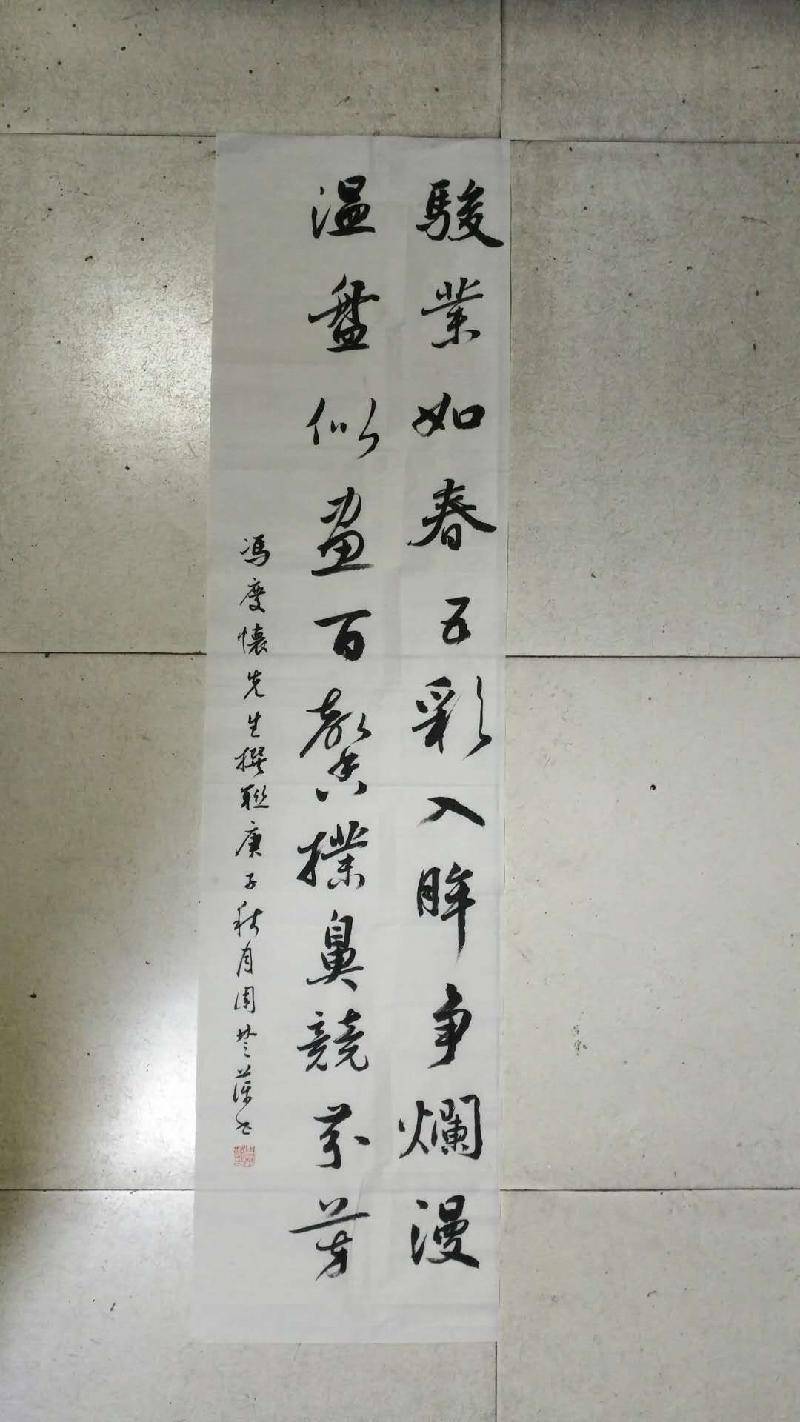 駿業如春五彩入眸争爛漫
温盤似畫百馨撲鼻競芬芳
馮慶懷先生撰聯庚子秋月周楚葆书